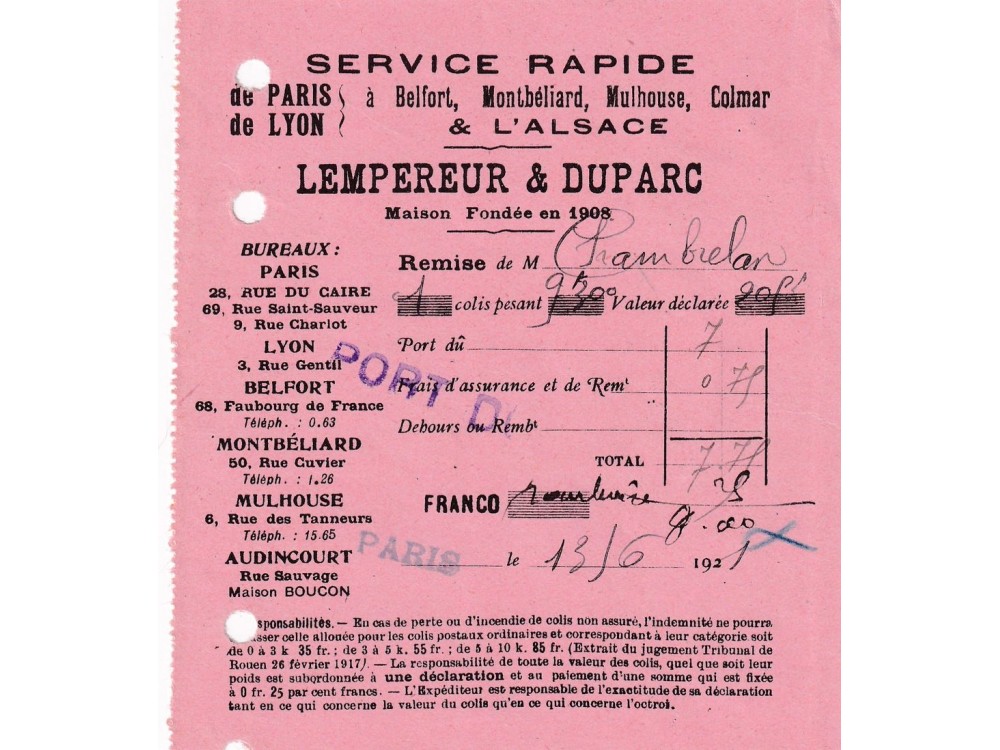 SERVICE RAPIDE
de PARIS
de LYON
à Belfort, Montbéliard, Mulhouse, Colmar
& L'ALSACE
LEMPEREUR & DUPARC
Maison Fondée en 1908
BUREAUX :
PARIS
28, RUE DU CAIRE
69, Rue Saint-Sauveur
9, Rue Charlot
LYON
3, Rue Gentil
BELFORT
68, Faubourg de France
Téléph. : 0.63
MONTBÉLIARD
50, Rue Cuvier
Téléph. : 1.26
MULHOUSE
6, Rue des Tanneurs
Téléph. : 15.65
AUDINCOURT
Rue Sauvage
Maison BOUCON
Remise de M Chambrelan
1 colis pesant 9k300 Valeur déclarée
Port dû 7
Frais d'assurance et de Remt 0 75
Debours ou Rembt
TOTAL 7.75
FRANCO 25
8.00
PORT DÛ
PARIS
le 13/6 1921
sponsabilités. — En cas de perte ou d'incendie de colis non assuré, l'indemnité ne pourra
asser celle allouée pour les colis postaux ordinaires et correspondant à leur catégorie soit
de 0 à 3 k 35 fr. ; de 3 à 5 k. 55 fr. ; de 5 à 10 k. 85 fr. (Extrait du jugement Tribunal de
Rouen 26 février 1917). — La responsabilité de toute la valeur des colis, quel que soit leur
poids est subordonnée à une déclaration et au paiement d'une somme qui est fixée
à 0 fr. 25 par cent francs. — L'Expéditeur est responsable de l'exactitude de sa déclaration
tant en ce qui concerne la valeur du colis qu'en ce qui concerne l'octroi.